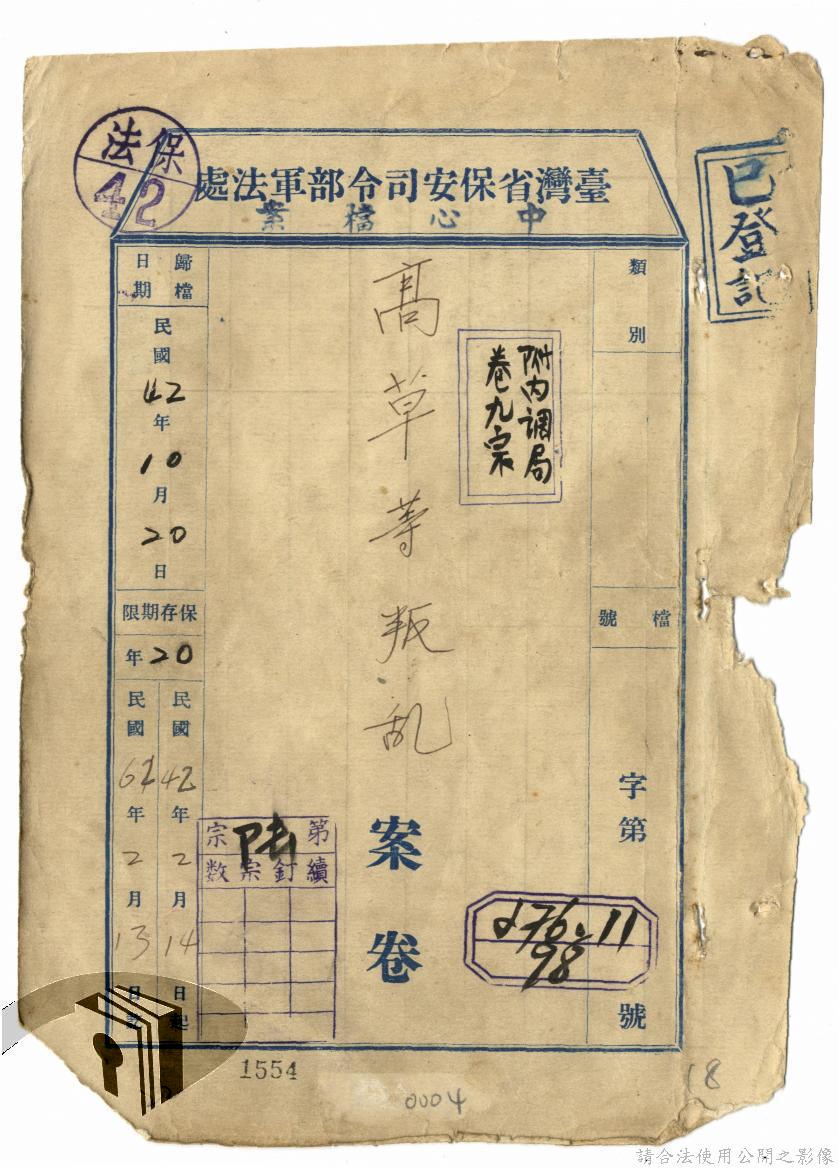 保法
42
臺灣省保安司令部軍法處
中心檔案
已登記
類別
檔號
字第
號
d76.11
98
附內調局
卷九宗
高草等叛乱
案卷
第
宗
續釘宗数
歸檔日期
民國42年10月20日
保存期限
20年
民國42年2月14日起
民國62年2月13日
1554
0004
18
請合法使用公開之影像